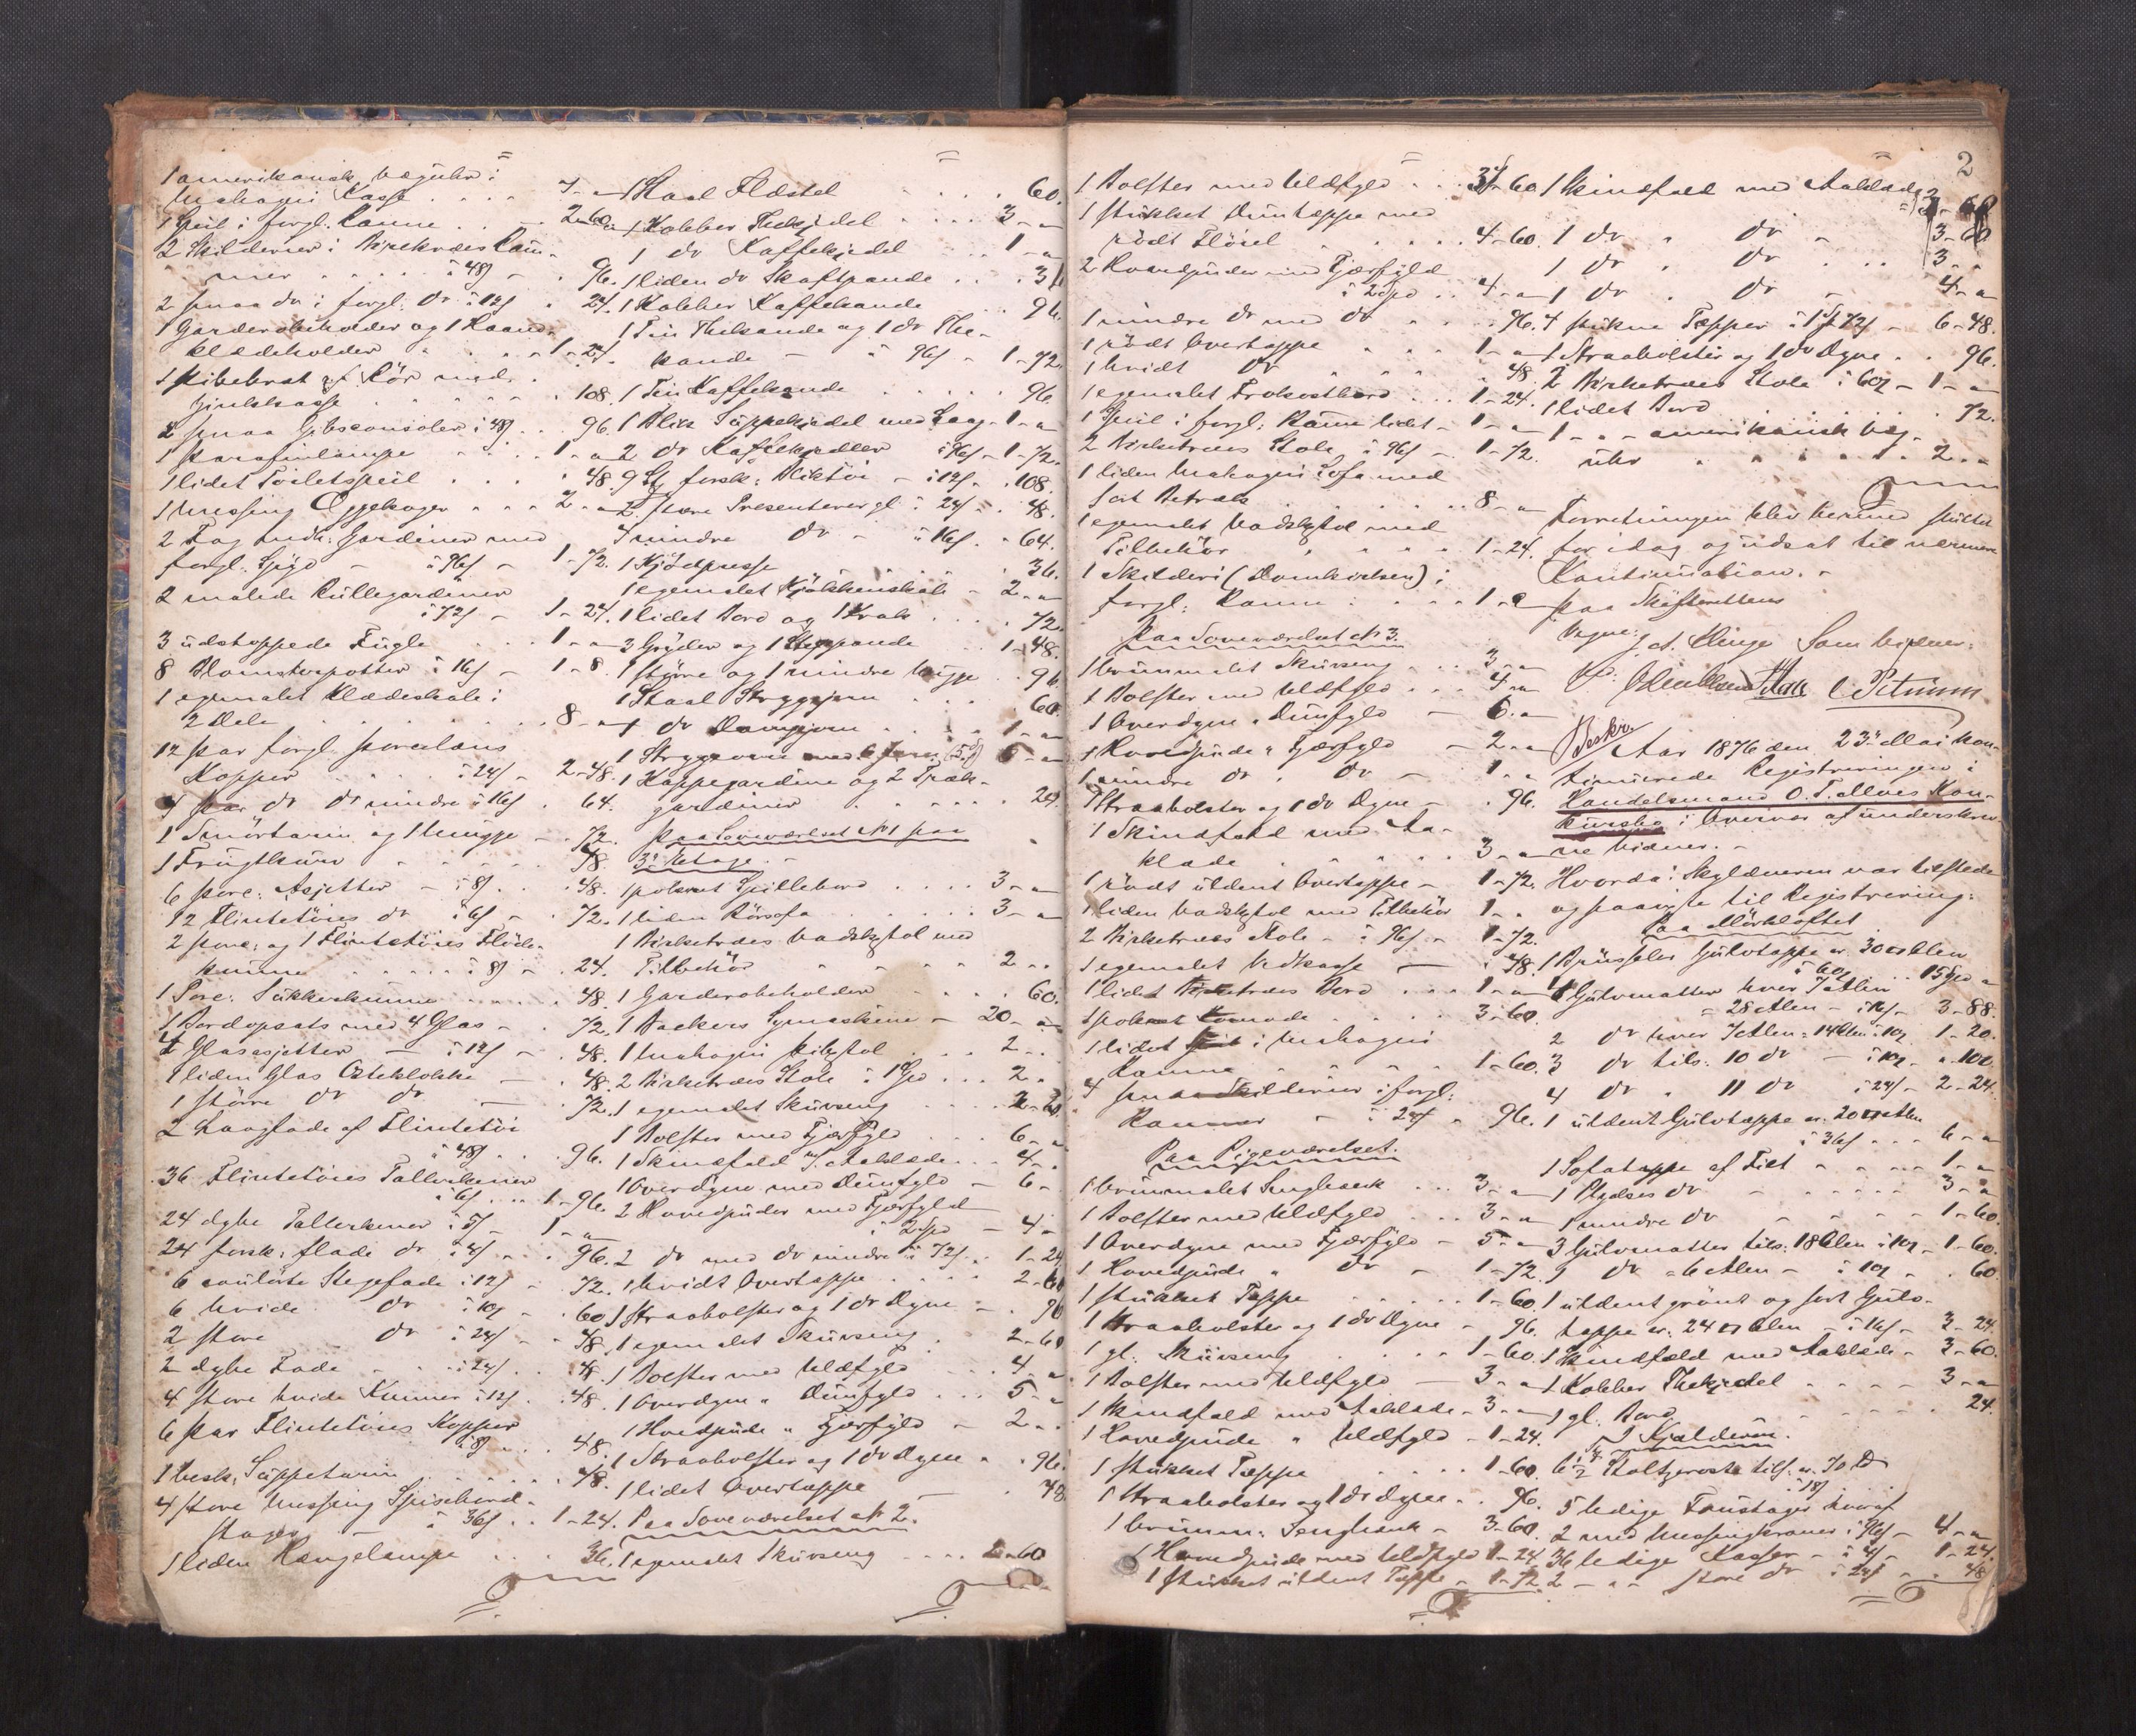 1 amerikansk Vægühr i
Mahagni Kasse . . . . 7 - "
1 Speil i forgl. Ramme . . 2-60.
2 Skilderier i Birketræes Ram-
mer . . . . . à 48ß - . 96.
2 smaa do i forgl: do à 12ß . 24.
1 Garderobeholder og 1 Haand-
klædeholder . . . . 1-24.
1 Pibebræt af Rör med
. . . . . 108.
2 smaa Gibsconsoler à 48ß . . 96.
1 Parafinlampe . . . . 1 - "
1 lidet Toiletspeil . . . . 48.
1 Messing Æggekoger . . . 2 - "
2 Fag Gardiner med
forgl. - à 96ß - 1-72.
2 malede Rüllegardiner
à 72ß - 1-24.
3 üdstoppede Fugle . . 1 - "
8 Blomsterpotter à 16ß - 1-8.
1 egemalet Klædeskab i
2 Dele . . . . . . 8 - "
12 Par forgl. Porcelæns
Kopper . . . . à 24ß - 2-48.
4 Par do do mindre à 16ß . 64.
1 Smörterin og 1 Mügge - . 72.
1 Frügtkürv - - - - 48.
6 Porc: Asjetter - à 8ß . . 48.
12 Flintetöies do à 6ß - . 72.
2 Porc: og 1 Flintetöies Flöde-
kumme . . . . . à 8ß - . 24.
1 Porc: Sükkerkumme . . . . 48.
1 Bordopsats med 4 Glas - . 72.
4 Glasasjetter — à 12ß - . 48.
1 liden Glas Osteklokke — . 48.
1 större do do — . 72.
2 Laagfade af Flintetöi
à 48ß . . 96.
36 Flintetöies Tallerkener
à 6ß . . 1-96.
24 dybe Tallerkener à 5ß - 1 - "
24 forsk: flade do à 4ß - . 96.
6 coulörte Stegefade à 12ß - . 72.
6 hvide do à 10ß - . 60
2 store do à 24ß - . 48.
2 dybe Fade - . . à 24ß . . 48.
4 store hvide Kummer à 12ß . . 48.
6 Par Flintetöies Kopper
à 8ß . . 48.
1 besk: Süppeterin . . . . 48.
4 store Messing Spisebord-
stager - à 36ß . . 1-24.
1 liden Hængelampe . . . . 36.
1 Staal Flæstel . . . . . 60.
1 Kobber Thekjedel . . . . 3 - "
1 do Kaffekjedel . . . 1 - "
1 liden do Skaftpande . . . 36
1 Kobber Kaffekande . . . . 96.
1 Tin Thekande og 1 do The-
kande - à 96ß - 1-72.
1 Tin Kaffekande . . . . . 96.
1 Blik Süppekjedel med Laag - 1 - "
2 do Kaffekjedler à 96ß - 1-72.
9 St. forsk: Bliktöi - à 12ß - . 108.
2 store Presenterergl à 24ß . . 48.
4 mindre do - à 16ß . . 64.
1 Kjödpresse . . 36.
1 egemalet Kjökkenskab - 2 - "
1 lidet Bord og 1 Krak . . . . 72.
3 Gryder og 1 Stegpande . . 1-48.
1 större og 1 mindre Mügge . . 96.
1 Staal Strygejern . . . . 60.
1 do Dampjern . . . . 1 - "
1 Strygeovn med 6 Jern (5 Spd) 5 - "
1 Kappegardine og 2 Træk-
gardiner . . . . . . 24.
Paa Soveværelset No 1 paa
3die Etage. -
1 poleret Spillebord . . . . 3 - "
1 liden Rörsofa . . . . . . 3 - "
1 Birketræes Vadskestol med
Tilbehör . . . . . . 2 - "
1 Garderobeholder . . . . . 60.
1 Backers Symaskine - 20 - "
1 Mahagni Pibestol . . . 2 - "
2 Birketræes Stole à 1 Spd . . . 2 - "
1 egemalet Skürseng . . . . 2-60
1 Bolster med Fjærfyld . . 6 - "
1 Skindfeld m/ Aaklæde . . 4 - "
1 Overdyne med Dünfyld - 6 -
2 Hovedpüder med Fjærfyld
à 2 Spd - 4 - "
2 do med do mindre à 72ß . . 1-24
1 hvidt Overtæppe . . . . 2-60
1 Straabolster og 1 do Dyne - . 96
1 egemalet Skürseng . . 2-60
1 Bolster med Uldfyld . . . 4 - "
1 Overdyne " Dünfyld . . . 5 - "
1 Hovedpüde " Fjærfyld - 2 - "
1 Straabolster og 1 do Dyne . . 96.
1 lidet Overtæppe — . 48.
Paa Soveværelset No 2.
1 egemalet Skürseng . . . 2-60
2
1 Bolster med Uldfyld . . 3-60
1 stükket Düntæppe med
rödt Flöiel . . . . . 4-60.
2 Hovedpüder med Fjærfyld
à 2 Spd . . 4 - "
1 mindre do med do . . . . 96.
1 rödt Overtæppe . . . . 1 - "
1 hvidt do . . . . . . 48.
1 egemalet Frokostbord . . . 1-24.
1 Speil i forgl. Ramme lidet - 1 - "
2 Birketræes Stole à 96ß - 1-72.
1 liden Mahagni Sofa med
sort Betræk . . . . . 8 - "
1 egemalet Vadskestol med
Tilbehör . . . . 1-24.
1 Skilderi (Domkirken) i
forgl: Ramme . . . . 1 - "
Paa Soveværelset No 3.
1 brünmalet Skürseng . . . 3 - "
1 Bolster med Uldfyld . . . 4 - "
1 Overdyne " Dünfyld — 6 - "
1 Hovedpüde " Fjærfyld - 2 - "
1 mindre do " do - 1 - "
1 Straabolster og 1 do Dyne - . 96.
1 Skindfeld med Aa-
klæde . . . . . 3 - "
1 rödt üldent Overtæppe - 1-72.
1 liden Vadskestol med Tilbehör 1 - "
2 Birketræes Stole - à 96ß - 1-72.
1 egemalet Vedkasse — . 48.
1 lidet Birketræes Bord . . . 1 - "
1 poleret Komode . . . . 3-60.
1 lidet Speil i Mahagni
Ramme . . . . . 1-60.
4 smaa Skilderier i forgl:
Rammer - à 24ß - . 96.
Paa Pigeværelset.
1 brünmalet Sengbænk . . . 3 - "
1 Bolster med Uldfyld . . . 3 - "
1 Overdyne med Fjærfyld - 5 - "
1 Hovedpüde " do - 1-72.
1 stükket Tæppe . . . . 1-60.
1 Straabolster og 1 do Dyne - . 96.
1 gl. Skürseng . . . . 1-60.
1 Bolster med Uldfyld — 3 - "
1 Skindfeld med Aaklæde - 3 - "
1 Hovedpüde " Uldfyld - 1-24.
1 stükket Tæppe . . . . 1-60.
1 Straabolster og 1 do Dyne . . 96.
1 brünm: Sengbænk - 3-60.
1 Hovedpüde med Uldfyld 1-24.
1 stükket üldent Tæppe - 1-72.
1 Skindfeld med Aaklæde
1 do " do - 3-60
1 do " do . . . 3 - "
1 do " do - 4 - "
4 stükne Tæpper à 1 Spd 72ß - 6-48.
1 Straabolster og 1 do Dyne . . 96.
2 Birketræes Stole à 60ß - 1 - "
1 lidet Bord . . . . . 72.
1 - " - amerikansk Væg-
ühr . . . . . . . 2 - "
Forretningen blev hermed slüttet
for idag og üdsat til nærmere
Kontinüation. -
Paa Skifterettens
Vegne:
J. A. Klinge Som Vidner:
Beskr.
Aar 1876 den 23de Mai kon-
tinüerede Registreringen i
Handelsmand O. T. Alvers Kon-
kürsbo i Overvær af ünderskrev-
ne Vidner. -
Hvorda: Skyldneren var tilstede
og paaviste til Registrering:
Paa Mörkloftet
1 Brüsseler Gülvtæppe ca. 30 □ Alen
à 60ß . . 15 Spd "
4 Gülvmatter hver 7 Alen
= 28 Alen - à 16ß - 3-88.
2 do hver 7 Alen = 14 Alen à 10ß 1-20.
3 do tils. 10 do - à 10ß - . 100.
4 do " 11 do à 24ß - 2-24.
1 üldent Gülvtæppe ca. 20 □ Alen
à 36ß . . . 6 - "
1 Sofatæppe af Filt - . . . 1 - "
1 do - . . . . 3 - "
1 mindre do - . . . . 1-60.
3 Gülvmatter tils. 18 Alen à 10ß - 1-60.
1 do = 6 Alen - à 10ß - . 60.
1 üldent grönt og sort Gülv-
tæppe ca. 24 □ Alen - à 16ß - 3-24.
1 Skindfeld med Aaklæde - 3-60.
1 Kobber Thekjedel . . . . 3 - "
1 gl. Bord . . . . . . . 24.
I Kjælderen.
5 ledige Füstager hvoraf
2 med Messingkraner à 96ß - 4 - "
36 ledige Kasser - à 4ß - 1-24.
2 - " - store do à 24ß - . 48